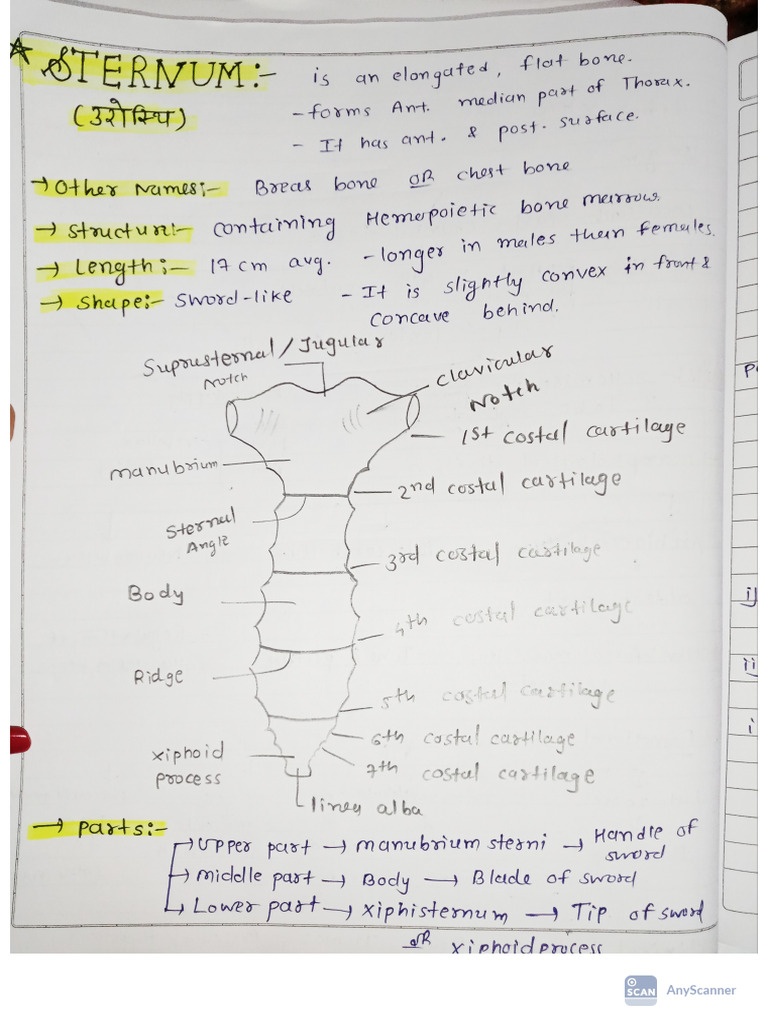 STERNUM:- is an elongated, flat bone.
(उरोस्थि) - forms Ant. median part of Thorax.
- It has ant. & post. surface.
→ Other Names:- Breas bone OR chest bone
→ Structur:- containing Hemopoietic bone marrow.
→ Length:- 17 cm avg. - longer in males then females.
→ Shape:- Sword-like - It is slightly convex in front &
concave behind.
Suprusternal / Jugular
Notch
Clavicular
Notch
1st costal cartilage
manubrium
2nd costal cartilage
Sternal
Angle
3rd costal cartilage
Body
4th costal cartilage
Ridge
5th costal cartilage
6th costal cartilage
xiphoid
process
7th costal cartilage
linea alba
→ Parts:-
→ Upper part → manubrium sterni → Handle of
sword
→ middle part → Body → Blade of sword
→ Lower part → xiphisternum → Tip of sword
OR xiphoid process
P
i)
ii)
i
SCAN AnyScanner